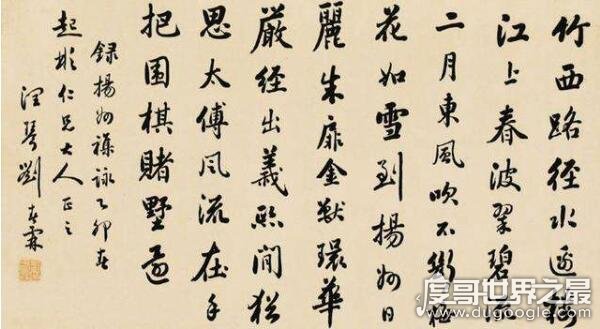 竹西路径水邊樓
江上春波翠碧流
二月東風吹不斷
花如雪到揚州日
麗朱扉金獸環華
嚴経出義熙間猶
思太傅風流在手
把圍棋賭墅還
録揚州襍詠乙卯春
起彬仁兄大人正之
潤琴劉春霖
度哥世界之最
www.dugoogle.com